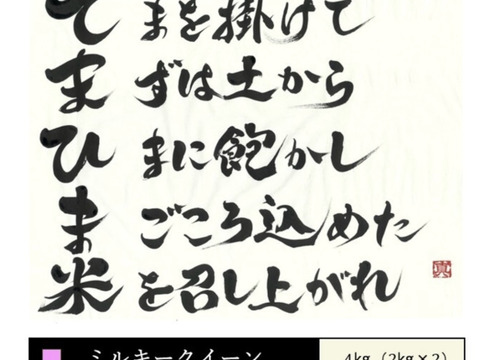 て まを掛けて
ま ずは土から
ひ まに飽かし
ま ごころ込めた
米 を召し上がれ
ミルキークイーン 4kg（2kg×2）